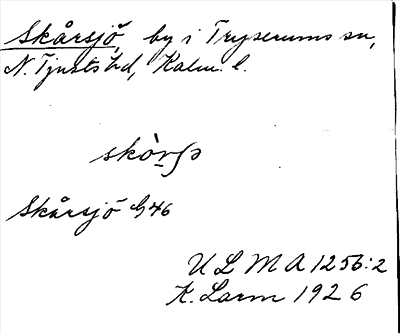 Skårsjö, by i Tryserums sn,
N. Tjusts hd, Kalm. l.
Skårsjö G46
ULMA 1256:2
K. Larm 1926